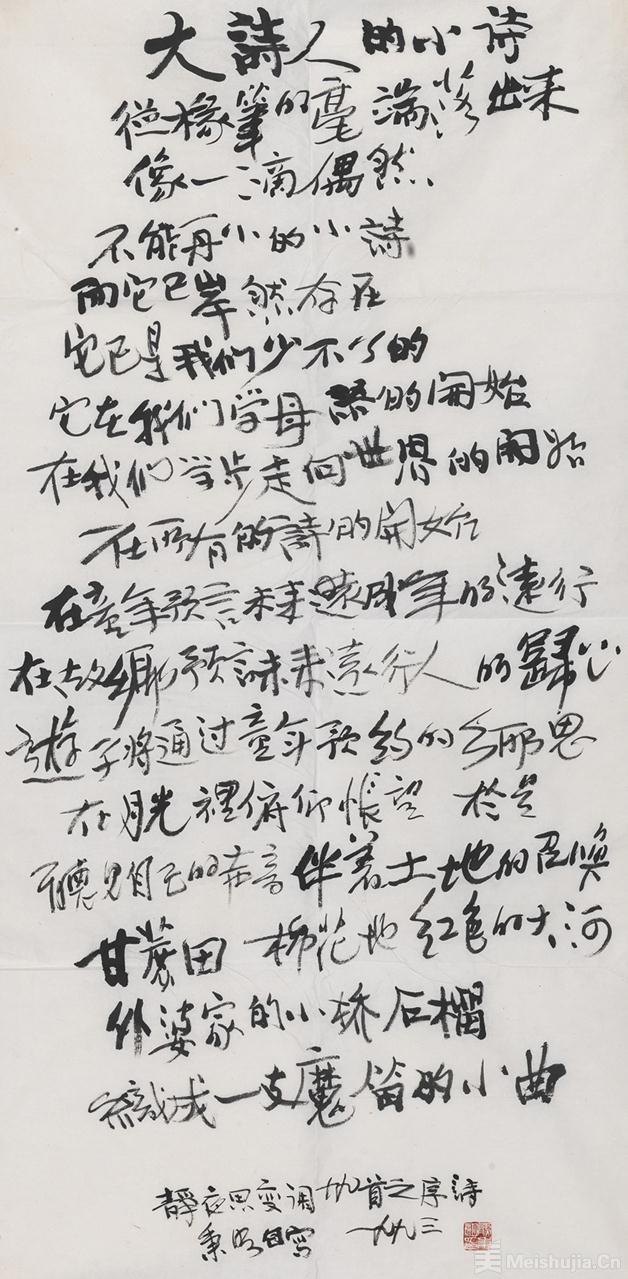 大詩人的小诗
從椽筆的毫端落出来
像一滴偶然
不能再小的小詩
而它已岸然存在
它已是我们少不了的
它在我们学母語的開始
在我们学步走向世界的開始
在所有的詩的開始
在童年预言未来遠成年的遠行
在故鄉预言未来遠行人的歸心
遊子将通过童年预约的鄉思
在月光裡俯仰悵望 於是
聽見自己的声音伴着土地的召唤
甘蔗田 棉花地 红色的大河
外婆家的小桥石榴
織成一支魔笛的小曲
靜夜思变调廿九首之序詩
秉明自写 一九九三
Meishujia.Cn